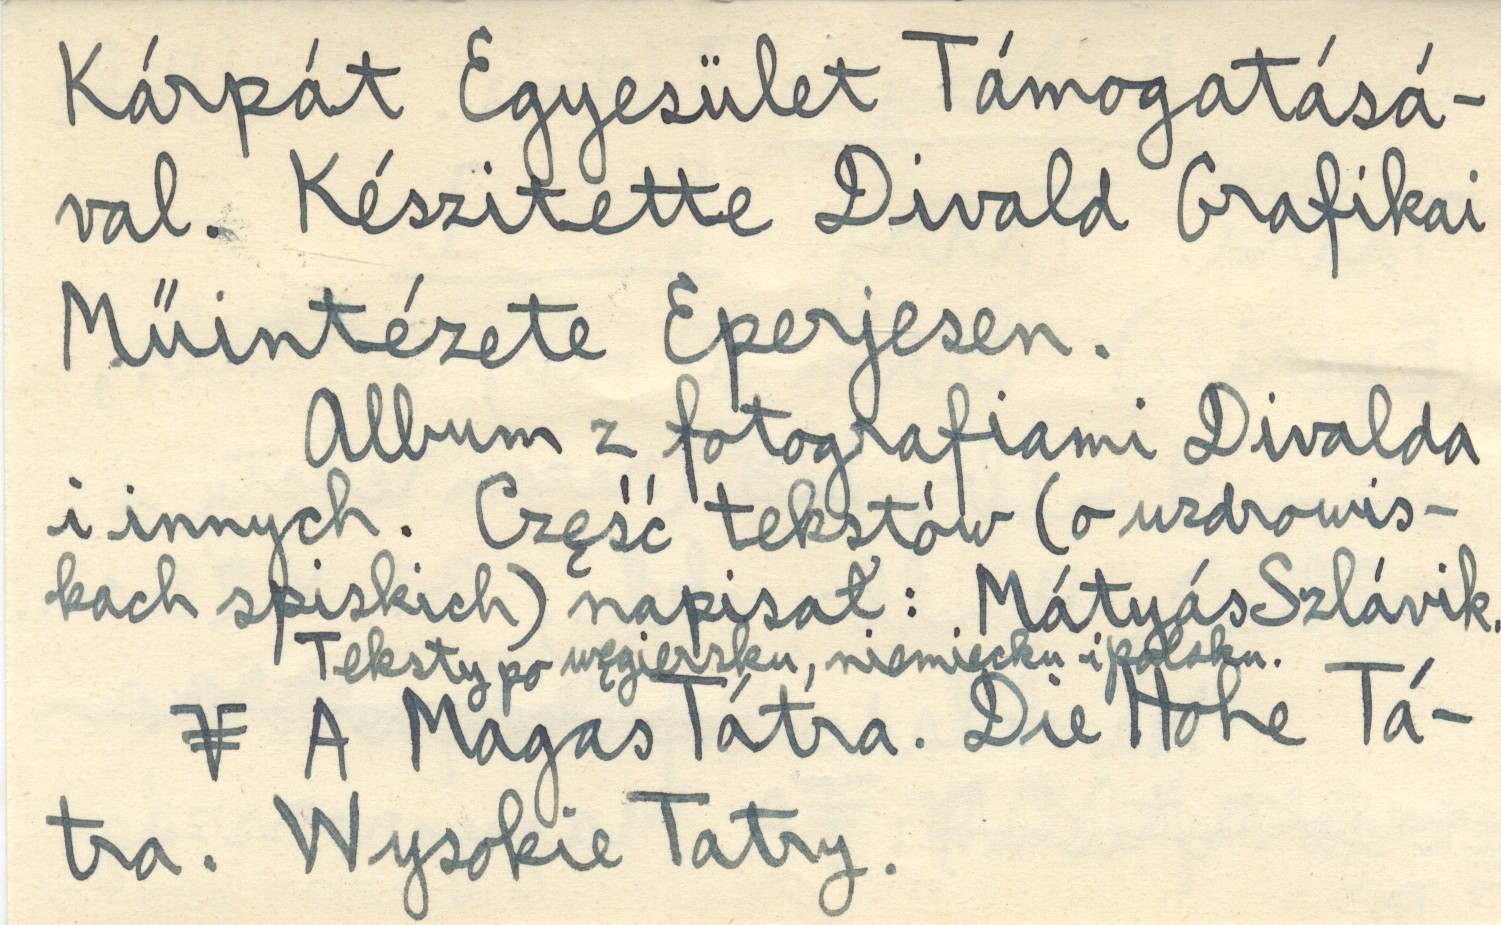 Kárpát Egyesület Támogatásá-
val. Készitette Divald Grafikai
Műintézete Eperjesen.
Album z fotografiami Divalda
i innych. Część tekstów (o uzdrowis-
kach spiskich) napisał: Mátyás Szlávik.
Teksty po węgiersku, niemiecku i polsku.
A Magas Tátra. Die Hohe Tá-
tra. Wysokie Tatry.